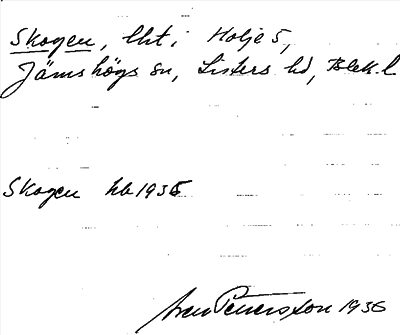 Skogen, lht i Holje 5,
Jämshögs sn, Listers hd, Blek. l
Skogen hb 1935
Sven Petersson 1936